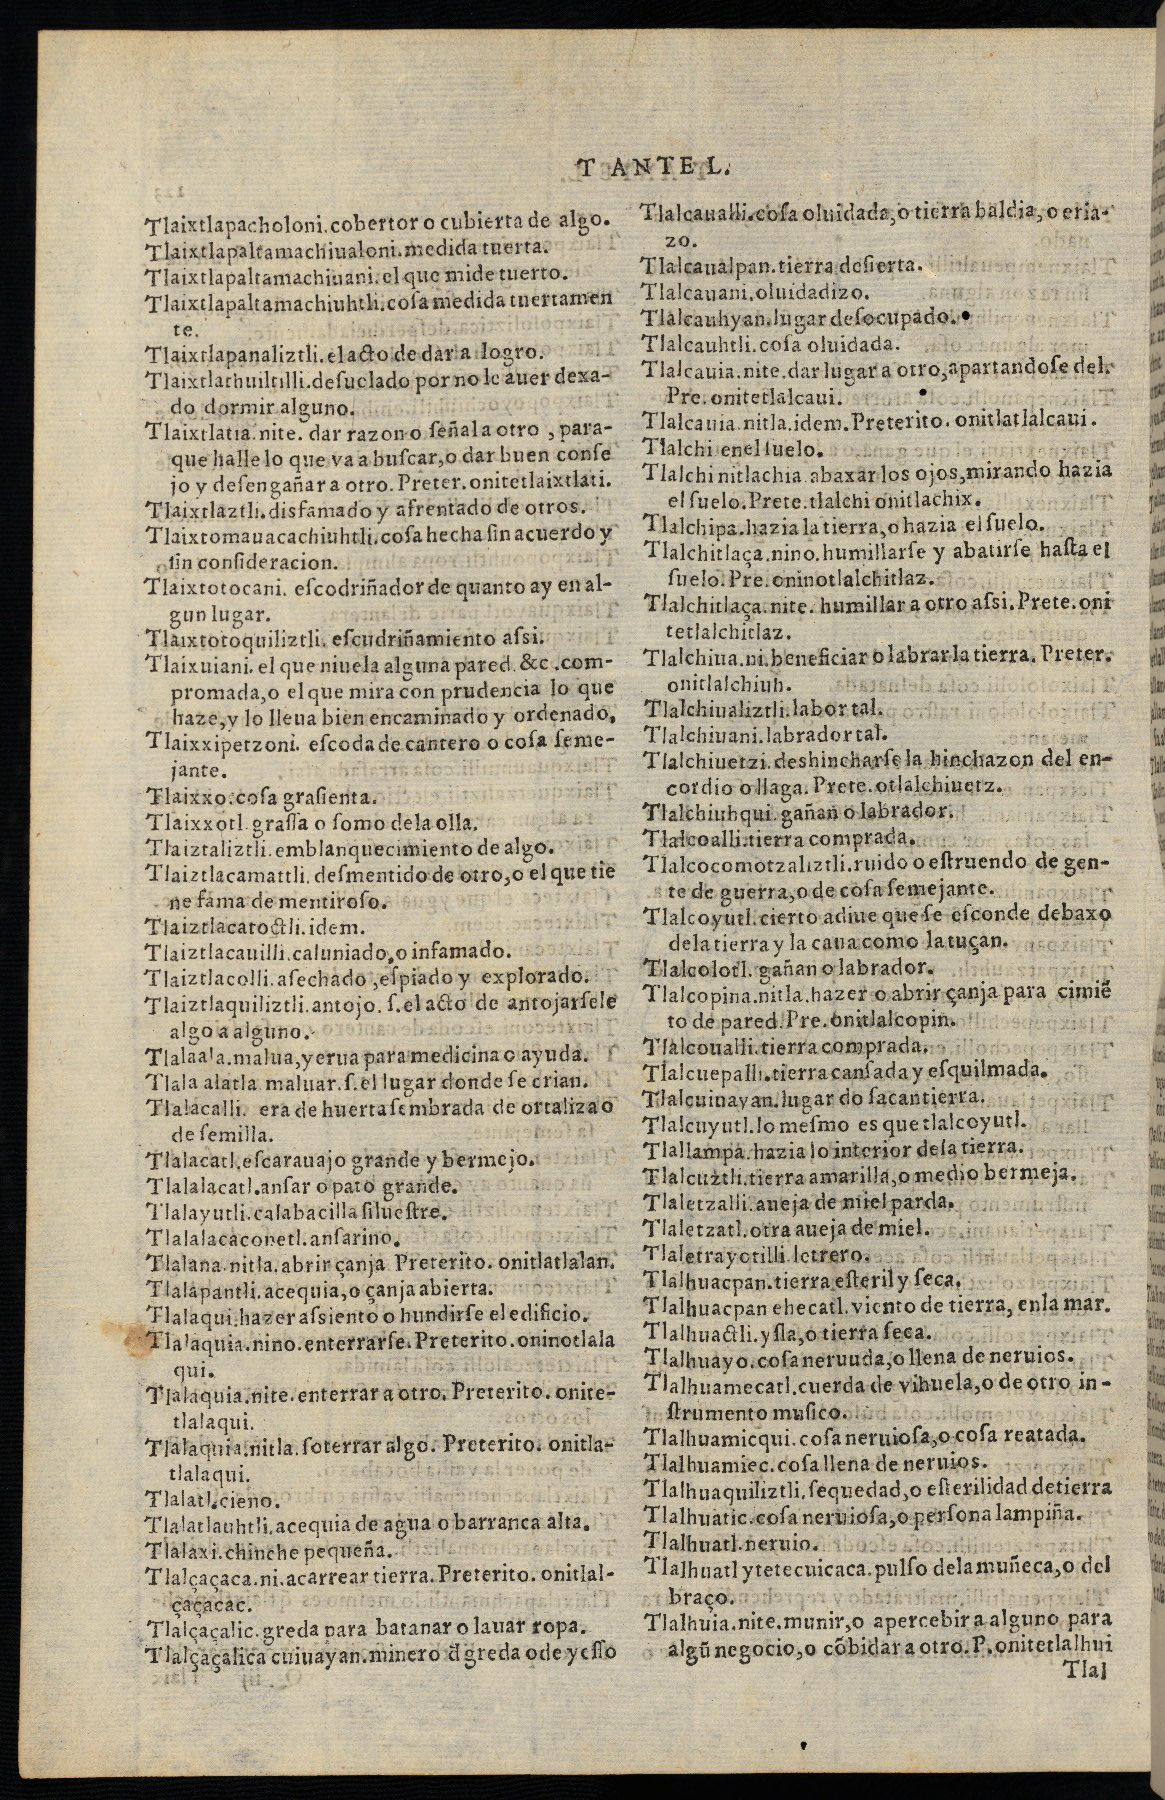 T ANTE L.
Tlaixtlapacholoni. cobertor o cubierta de algo.
Tlaixtlapaltamachiualoni. medida tuerta.
Tlaixtlapaltamachiuani. el que mide tuerto.
Tlaixtlapaltamachiuhtli. coſa medida tuertamen
te.
Tlaixtlapanaliztli. el acto de dar a logro.
Tlaixtlathuiltilli. deſuelado por no le auer dexa-
do dormir alguno.
Tlaixtlatia. nite. dar razon o ſeñal a otro , para-
que halle lo que va a buſcar, o dar buen conſe
jo y deſengañar a otro. Preter. onitetlaixtlati.
Tlaixtlaztli. disfamado y afrentado de otros.
Tlaixtomauacachiuhtli. coſa hecha ſin acuerdo y
ſin conſideracion.
Tlaixtotocani. eſcodriñador de quanto ay en al-
gun lugar.
Tlaixtotoquiliztli. eſcudriñamiento aſsi.
Tlaixuiani. el que niuela alguna pared. &c. com-
promada, o el que mira con prudencia lo que
haze, y lo lleua bien encaminado y ordenado.
Tlaixxipetzoni. eſcoda de cantero o coſa ſeme-
jante.
Tlaixxo. coſa graſienta.
Tlaixxotl. graſſa o ſomo dela olla.
Tlaiztaliztli. emblanquecimiento de algo.
Tlaiztlacamattli. deſmentido de otro, o el que tie
ne fama de mentiroſo.
Tlaiztlacatoctli. idem.
Tlaiztlacauilli. caluniado, o infamado.
Tlaiztlacolli. aſechado , eſpiado y explorado.
Tlaiztlaquiliztli. antojo. ſ. el acto de antojarſele
algo a alguno.
Tlalaala. malua, yerua para medicina o ayuda.
Tlala alatla. maluar. ſ. el lugar donde ſe crian.
Tlalacalli. era de huerta ſembrada de ortaliza o
de ſemilla.
Tlalacatl. eſcarauajo grande y bermejo.
Tlalalacatl. anſar o pato grande.
Tlalayutli. calabacilla ſilueſtre.
Tlalalacaconetl. anſarino.
Tlalana. nitla. abrir çanja. Preterito. onitlatlalan.
Tlalapantli. acequia, o çanja abierta.
Tlalaqui. hazer aſsiento o hundirſe el edificio.
Tlalaquia. nino. enterrarſe. Preterito. oninotlala
qui.
Tlalaquia. nite. enterrar a otro. Preterito. onite-
tlalaqui.
Tlalaquia. nitla. ſoterrar algo. Preterito. onitla-
tlalaqui.
Tlalatl. cieno.
Tlalatlauhtli. acequia de agua o barranca alta.
Tlalaxi. chinche pequeña.
Tlalçaçaca. ni. acarrear tierra. Preterito. onitlal-
çaçacac.
Tlalçaçalic. greda para batanar o lauar ropa.
Tlalçaçalica cuiuayan. minero đ greda o de yeſſo
Tlalcaualli. coſa oluidada, o tierra baldia, o eria-
zo.
Tlalcaualpan. tierra deſierta.
Tlalcauani. oluidadizo.
Tlalcauhyan. lugar deſocupado.
Tlalcauhtli. coſa oluidada.
Tlalcauia. nite. dar lugar a otro, apartandoſe del.
Pre. onitetlalcaui.
Tlalcauia. nitla. idem. Preterito. onitlatlalcaui.
Tlalchi enel ſuelo.
Tlalchi nitlachia. abaxar los ojos, mirando hazia
el ſuelo. Prete. tlalchi onitlachix.
Tlalchipa. hazia la tierra, o hazia el ſuelo.
Tlalchitlaça. nino. humillarſe y abatirſe haſta el
ſuelo. Pre. oninotlalchitlaz.
Tlalchitlaça. nite. humillar a otro aſsi. Prete. oni
tetlalchitlaz.
Tlalchiua. ni. beneficiar o labrar la tierra. Preter.
onitlalchiuh.
Tlalchiualiztli. labor tal.
Tlalchiuani. labrador tal.
Tlalchiuetzi. deshincharſe la hinchazon del en-
cordio o llaga. Prete. otlalchiuetz.
Tlalchiuhqui. gañan o labrador.
Tlalcoalli. tierra comprada.
Tlalcocomotzaliztli. ruido o eſtruendo de gen-
te de guerra, o de coſa ſemejante.
Tlalcoyutl. cierto adiue que ſe eſconde debaxo
dela tierra y la caua como la tuçan.
Tlalcolotl. gañan o labrador.
Tlalcopina. nitla. hazer o abrir çanja para cimiẽ
to de pared. Pre. onitlalcopin.
Tlalcoualli. tierra comprada.
Tlalcuepalli. tierra canſada y eſquilmada.
Tlalcuiuayan. lugar do ſacan tierra.
Tlalcuyutl. lo meſmo es que tlalcoyutl.
Tlallampa. hazia lo interior dela tierra.
Tlalcuztli. tierra amarilla, o medio bermeja.
Tlaletzalli. aueja de miel parda.
Tlaletzatl. otra aueja de miel.
Tlaletrayotilli. letrero.
Tlalhuacpan. tierra eſteril y ſeca.
Tlalhuacpan ehecatl. viento de tierra, enla mar.
Tlalhuactli. yſla, o tierra ſeca.
Tlalhuayo. coſa neruuda, o llena de neruios.
Tlalhuamecatl. cuerda de vihuela, o de otro in-
ſtrumento muſico.
Tlalhuamicqui. coſa neruioſa, o coſa reatada.
Tlalhuamiec. coſa llena de neruios.
Tlalhuaquiliztli. ſequedad, o eſterilidad de tierra
Tlalhuatic. coſa neruioſa, o perſona lampiña.
Tlalhuatl. neruio.
Tlalhuatl ytetecuicaca. pulſo dela muñeca, o del
braço.
Tlalhuia. nite. munir, o apercebir a alguno para
algũ negocio, o cõbidar a otro. P. onitetlalhui
Tlal